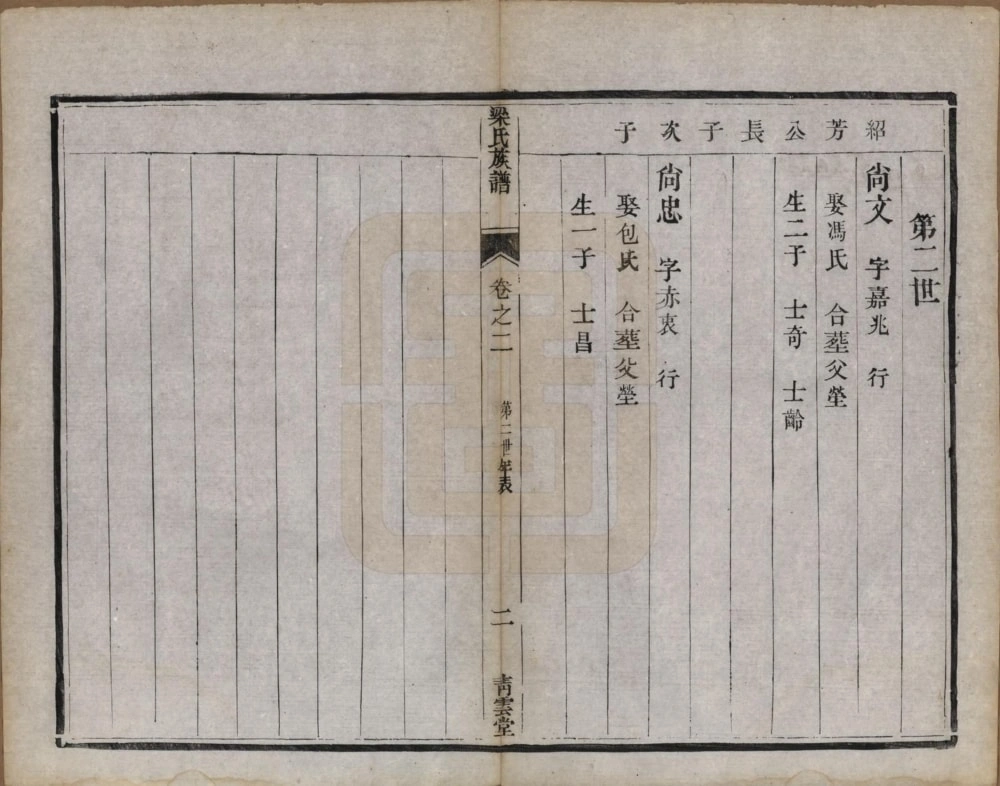 紹芳公長子次子
第二世
尙文　字嘉兆　行
娶馮氏　合塟父塋
生二子　士奇　士齡
尙忠　字赤衷　行
娶包氏　合塟父塋
生一子　士昌
梁氏族譜　卷之二　第二世年表　二　青雲堂